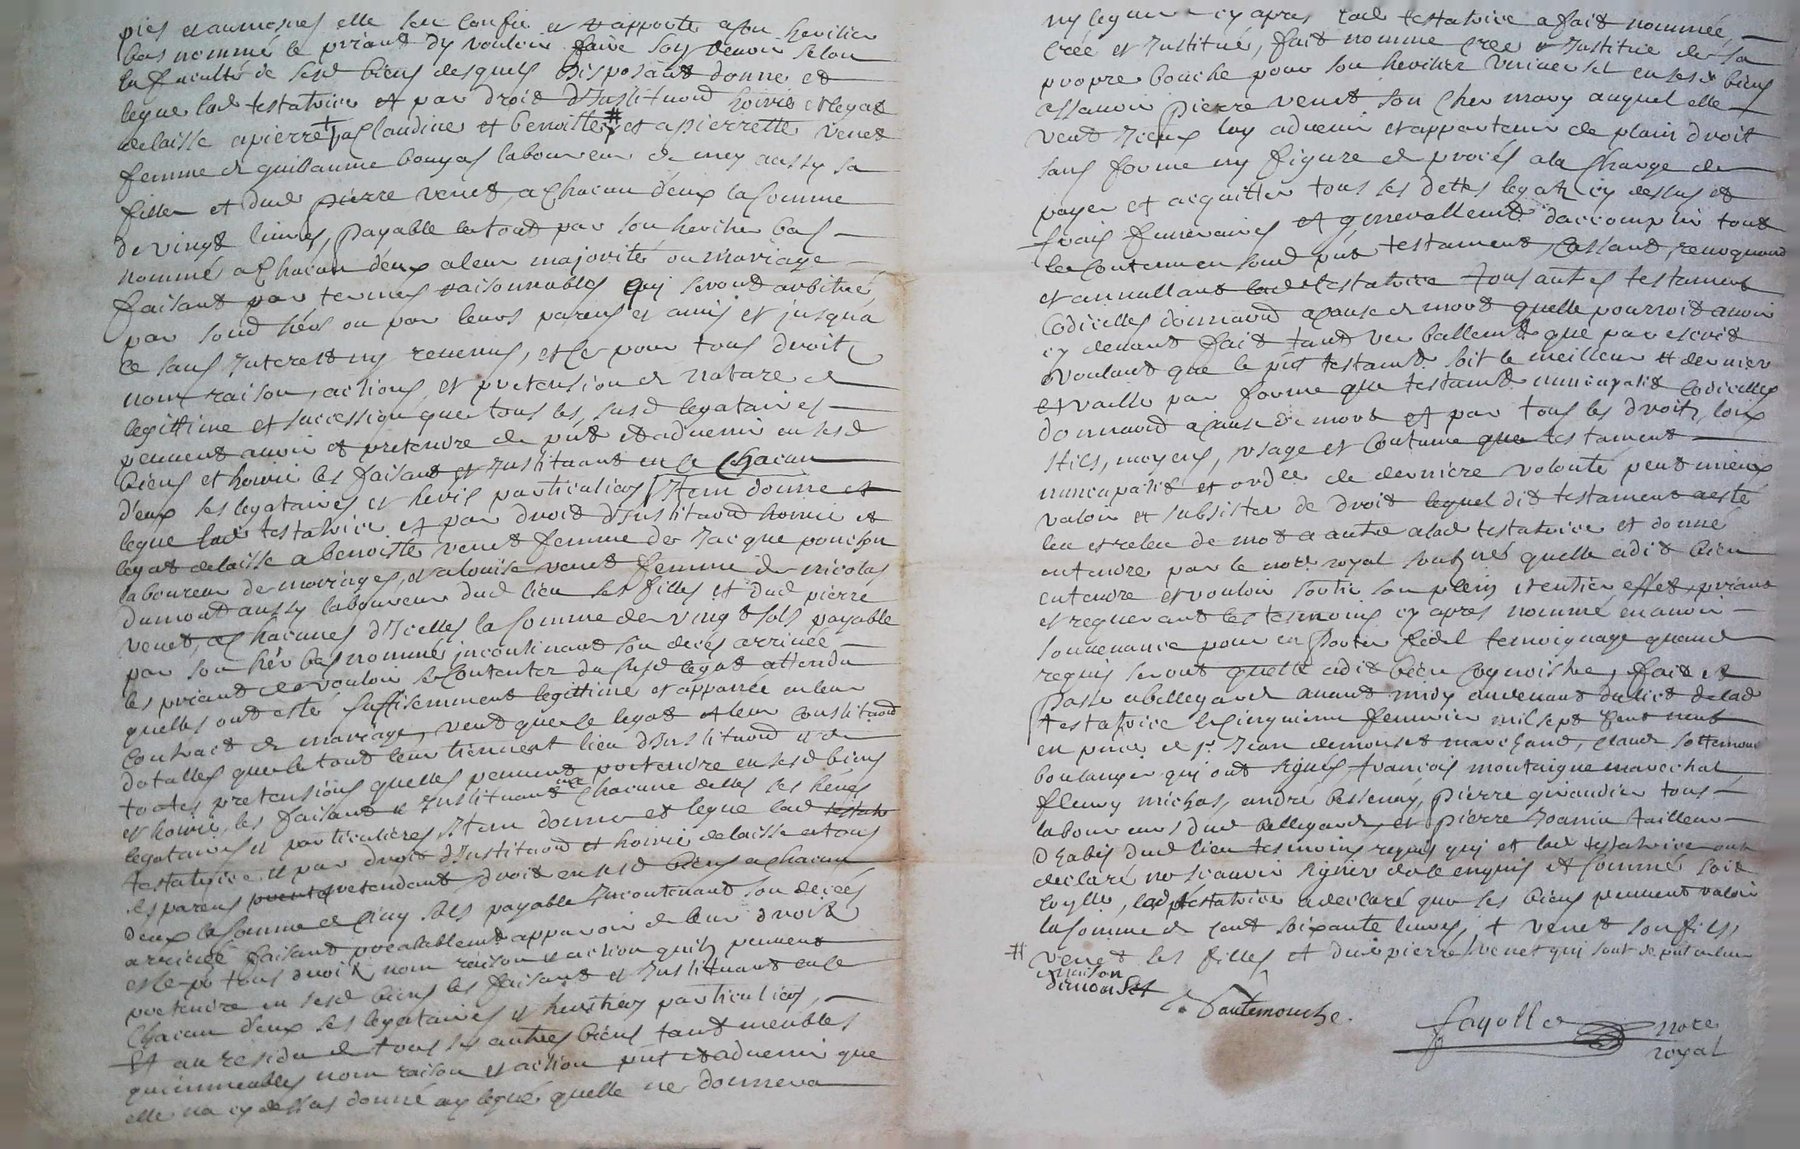 pies et aumosnes elle sen confie et rapporte a son heritier
bas nommé le priant dy vouloir faire son devoir selon
la faculté de sesd biens desquels disposant donne et
legue lad testatrice et par droit d'Institu&#xon;on hoirie et legat
delaisse a pierre + a Claudine et benoiste # et a pierrette venet
femme de guillaume bouyas laboureur de mey aussy sa
fille et dud pierre venet, a chacun deux la somme
de vingt livres, payable le tout par son heritier bas
nommé a chacun d'eux a leur majorité ou mariage
faisant par termes raisonnables qui seront arbitré
par sond hers ou par leurs parens et amis et jusqua
ce sans Interest ny revenus, et ce pour tous droits
nom raison, actions, et pretensions de nature de
legittime et succession que tous les susd legataires
peuvent avoir et pretendre de pnt et advenir en sesd
biens et hoirie les faisant et Instituant en ce Chacun
d'eux ses legataires et heris particuliers Item donne et
legue lad testatrice et par droit d'Instituaon hoirie et
legat delaisse a benoiste venet femme de Jacque ponchon
laboureur de maringes, et a louise venet femme de nicolas
dumont aussy laboureur dud lieu ses filles et dud pierre
venet, a chacunes d'Icelles la somme de vingt sols payable
par son her bas nommé incontinant son deces arrivée
les priant de vouloir se contenter du susd legat attendu
quelles ont esté suffisemment legittimé et apparée en leur
Contract de mariage, veut que ce legat et leur Constituaon
dotalles que le tout leur tiennent lieu d'Instituaon et de
toutes pretensions quelles peuvent pretendre en sesd biens
et hoirie, les faisant et Instituant en ce chacune delles ses heres
legataires et particulieres Item donne et legue lad testatr
testatrice et par droit d'Instituaon et hoirie delaisse a tous
ses parens pretendants droit en sesd biens a Chacun
deux la somme de cinq sols payable Incontinant son deces
arrivée faisant prealablement apparoir de leur droit
et ce po tous droits nom raison et action quils peuvent
pretendre en sesd biens les faisant et Instituant en ce
Chacun d'eux ses legataires et heritiers particuliers,
Et au residu de tous ses autres biens tant meubles
que immeubles nom raison et action pnt et advenir que
elle na cy dessus donné ny legué, quelle ne donnera
ny leguera cy apres lad testatrice a fait nommée,
créé et Institué, fait nomme cree et Institue de sa
propre bouche pour son heritier universel en sesd biens
assavoir pierre venet son cher mary auquel elle
veut Iceux luy advenir et appartenir de plain droit
sans forme ny figure de procés a la charge de
payer et acquitter tous ses dettes legats cy dessus et
frais funeraires et generallement d'accomplir tout
le contenu en sond pnt testament, Cassant, revoquant
et annullant lad testatrice tous autres testament
Codicelles donnaon a cause de mort quelle pourroit avoir
cy devant fait tant verballement que par escrit
voulant que le pnt testamt soit le meilleur et dernier
et vaille par forme que testamt nuncupatif Codicelles
donnaon a cause de mort et par tous les droits, loix
stils, moyens, usage et coutume que testament
nuncupatif et ordce de derniere volonté peut mieux
valoir et subsister de droit lequel dit testament a esté
leu et releu de mot a autre a lad testatrice et donné
entendre par le nore royal soussigné quelle a dit bien
entendre et vouloir sortir son plein et entier effet, priant
et requerant les tesmoins cy apres nommé en avoir
souvenance pour en porter fidel temoignage quand
requis seront quelle a dit bien Cognoistre, fait et
passé a bellegarde avant midy au devant du lict de lad
testatrice le cinquieme fevrier mil sept cent neuf
en pnce de sr Jean demonset marchand, claude sottemouche
boulanger qui ont signés francois montaigne marechal,
fleury michas, andré bessenay, pierre giraudier tous
laboureurs dud bellegarde, et pierre Joanin tailleur
d'habis dud lieu tesmoins requis qui et lad testatrice ont
declaré ne scavoir signer de ce enquis et sommé soit
Coylle, lad testatrice a declaré que ses biens peuvent valoir
la somme de cent soixante livres, + venet son fils
# venet ses filles et dud pierre venet qui sont de put en leur
maison
demonset
C. Sautemouche.
fayolle nore
royal